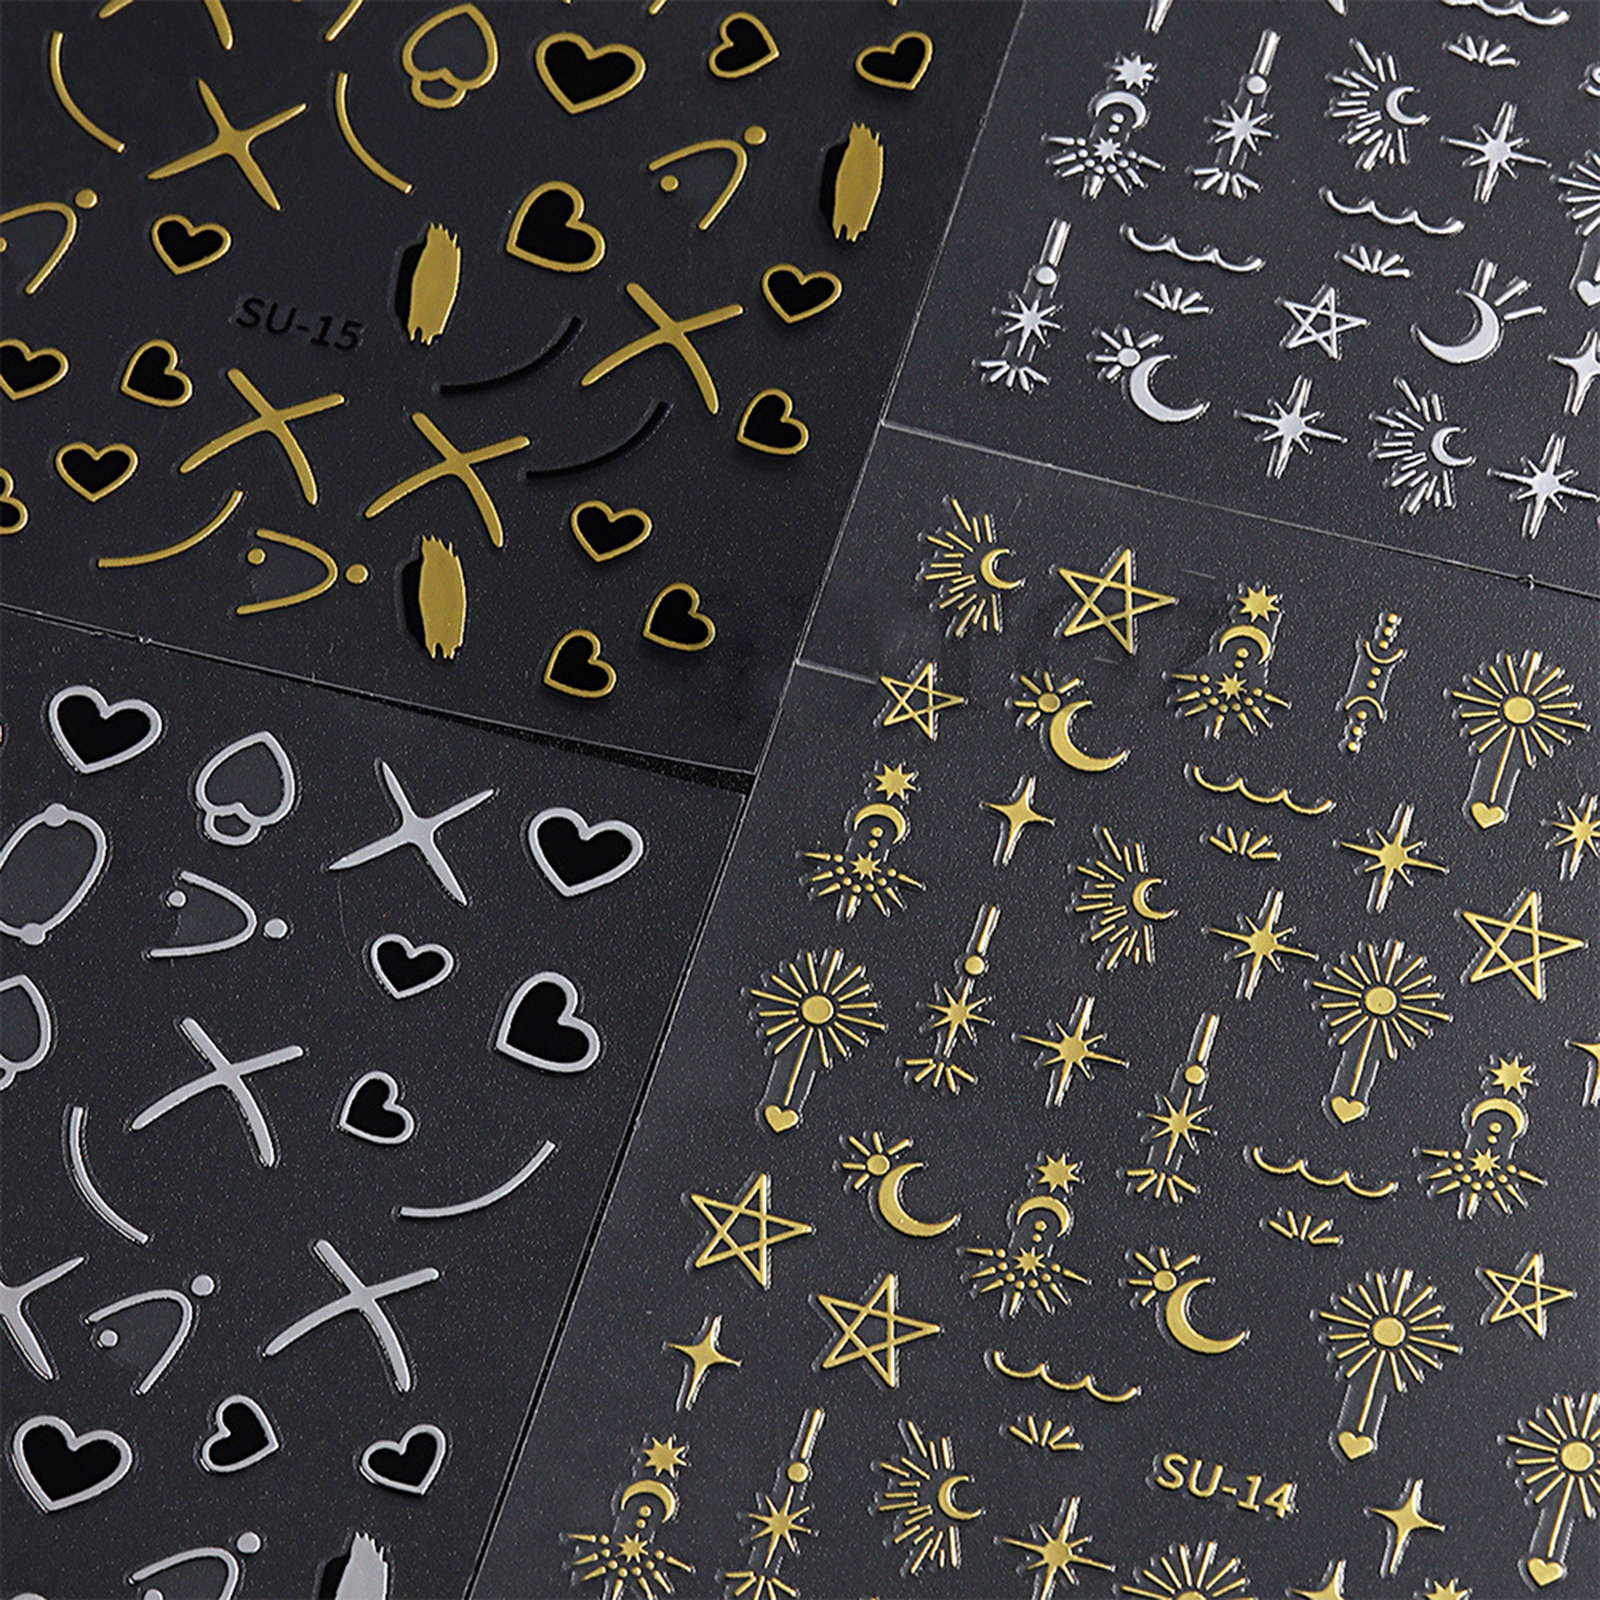 SU-15
SU-14